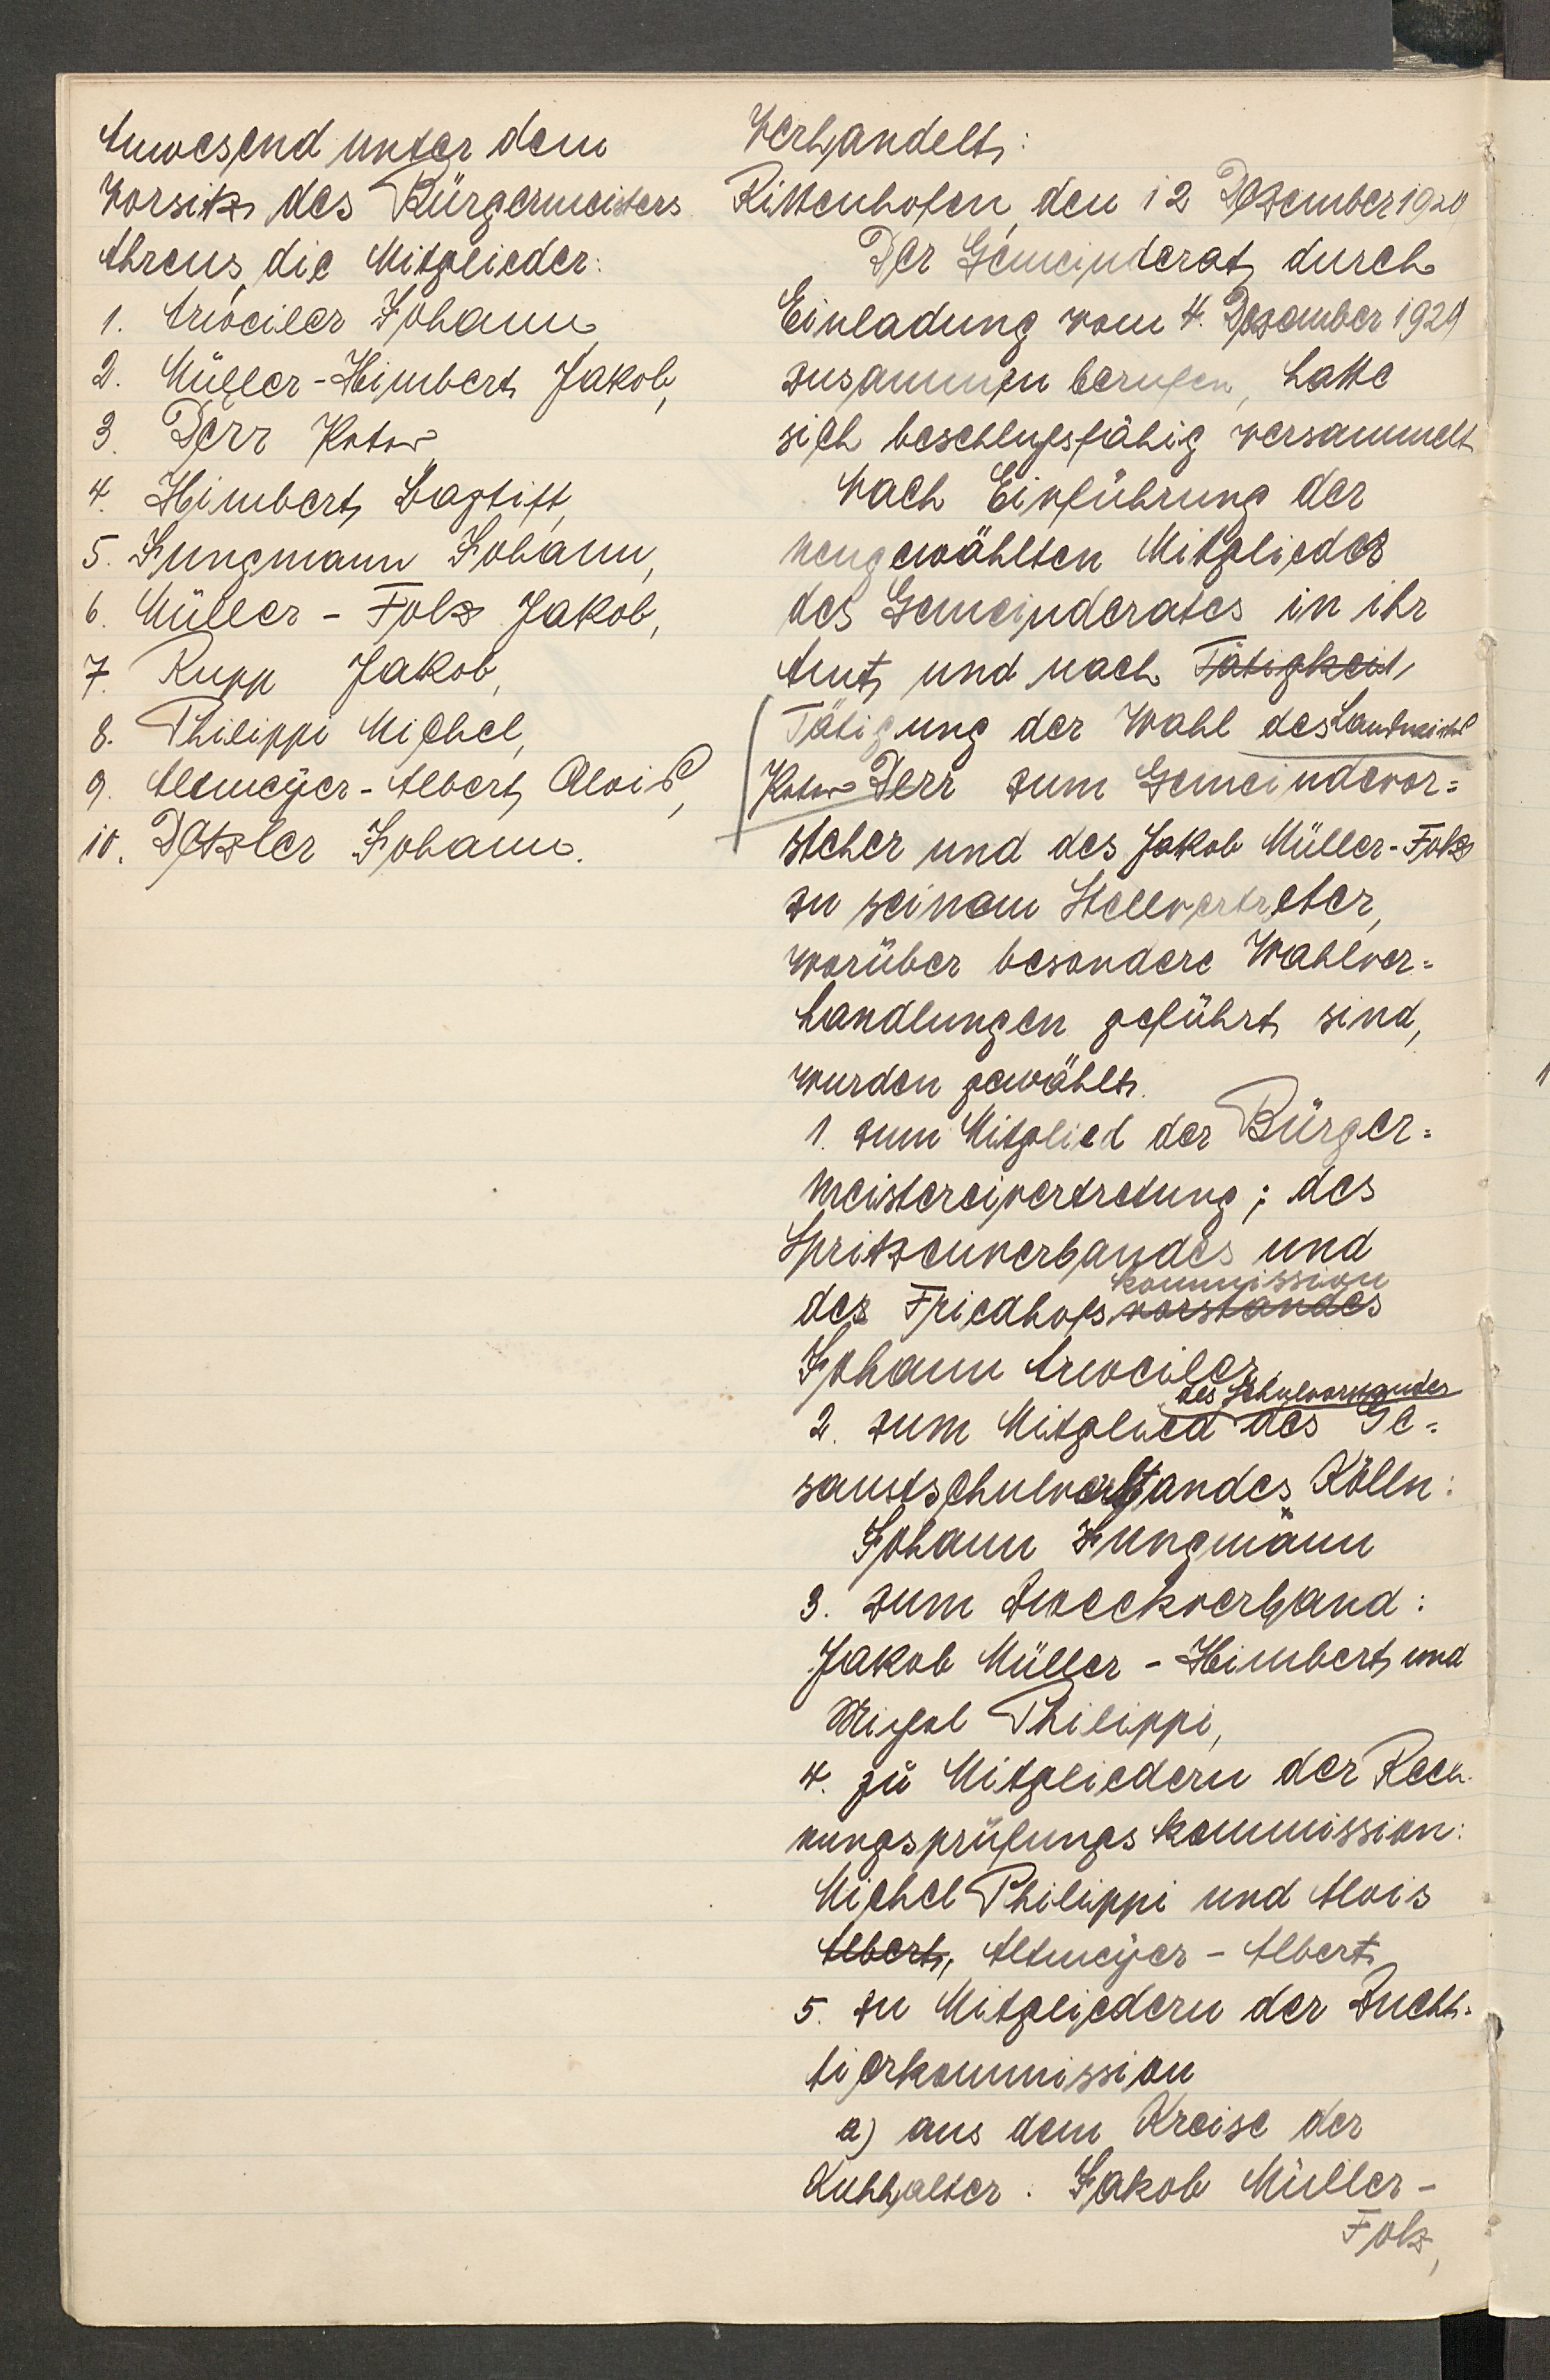 Anwesend unter dem
Vorsitz des Bürgermeisters
Ahrens, die Mitglieder:
1. Arweiler Johann,
2. Müller-Himbert Jakob,
3. Derr
4. Himbert Baptist,
5. Jungmann Johann,
6. Müller - Folz Jakob,
7. Rupp Jakob,
8. Philippi Michel,
9. Altmeyer-Albert Alois,
10. Detzler Johann.
Verhandelt:
Rittenhofen, den 12 Dezember 1929
Der Gemeinderat durch
Einladung vom 4. Dezember 1929
zusammen berufen, hatte
sich beschlußfähig versammelt
Nach Einführung der
neugewählten Mitglieder
des Gemeinderates in ihr
Amt und nach Tätigkeit
Tätigung der Wahl des
Derr zum Gemeindevor=
steher und des Jakob Müller-Folz
zu seinem Stellvertreter,
worüber besondere Wahlver=
handlungen geführt sind,
wurden gewählt.
1. zum Mitglied der Bürger=
meistereivertretung; des
Spritzenverbandes und
kommission
der Friedhofsvorstandes
Johann Arweiler,
des Schulvorstandes
2. zum Mitglied des Ge=
samtschulverbandes Kölln:
Johann Jungmann
3. zum Zweckverband:
Jakob Müller - Himbert und
Michel Philippi,
4. zu Mitgliedern der Rech-
nungsprüfungskommission:
Michel Philippi und Alois
Albert, Altmeyer - Albert
5. zu Mitgliedern der Zucht-
tierkommission
a) aus dem Kreise der
Kuhhalter. Jakob Müller-
Folz,